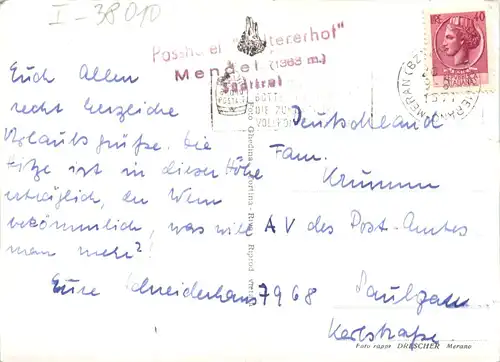 I-38010
Posshotel "
Mendel (1363 m.)
Südtirol
LIRE 40
MERAN (BZ)
Euch Allen
recht herzliche
Urlaubsgrüße. Die
Hitze ist in dieser Höhe
erträglich, der Wein
bekömmlich, was will
man mehr?!
Eure Schneiderhans
Deutschland
Fam.
Krumm
AV des Post-Amtes
7968 Saulgau
Karlstraße.
Foto rappr DRESCHER Merano